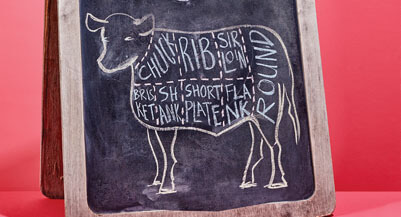 CHUCK
RIB
SIR
LOIN
ROUND
BRIS
KET
SH
ANK
SHORT
PLATE
FLA
NK